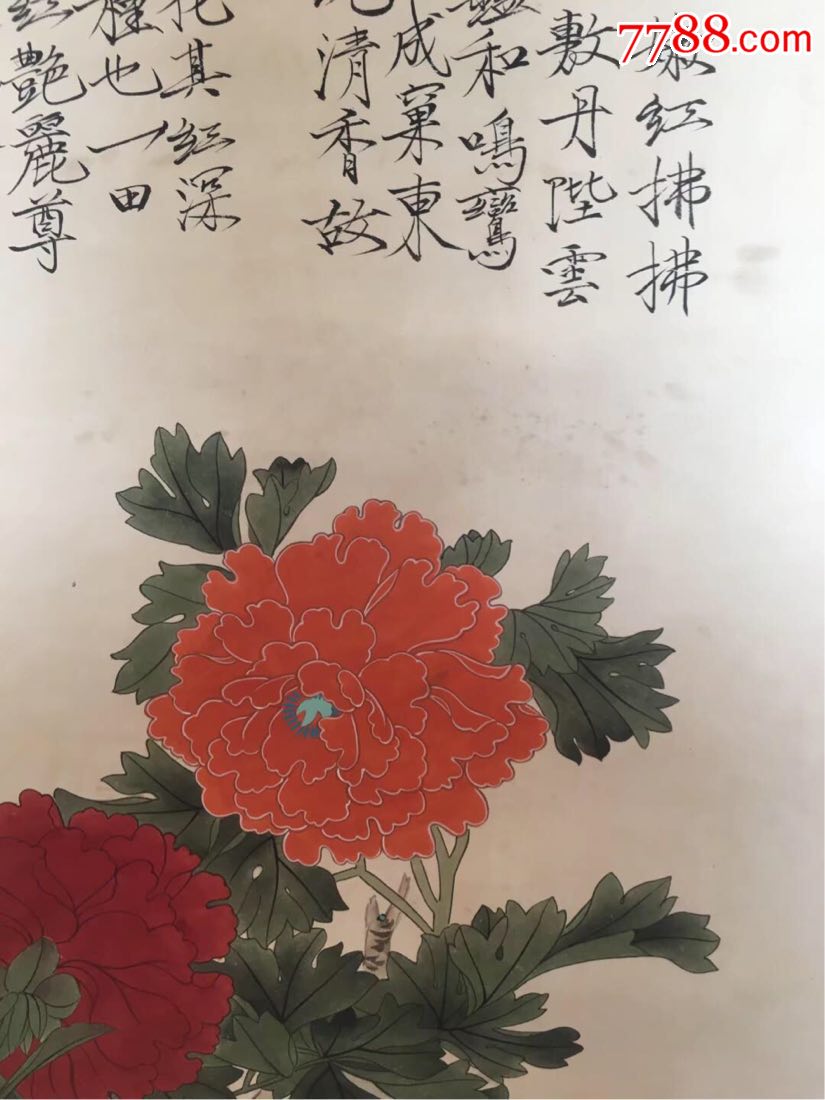 7788.com
嫩红拂拂
敷丹陛雲
和鳴鸞
成窠東
清香故
花其红深
種也一田
红艷麗尊